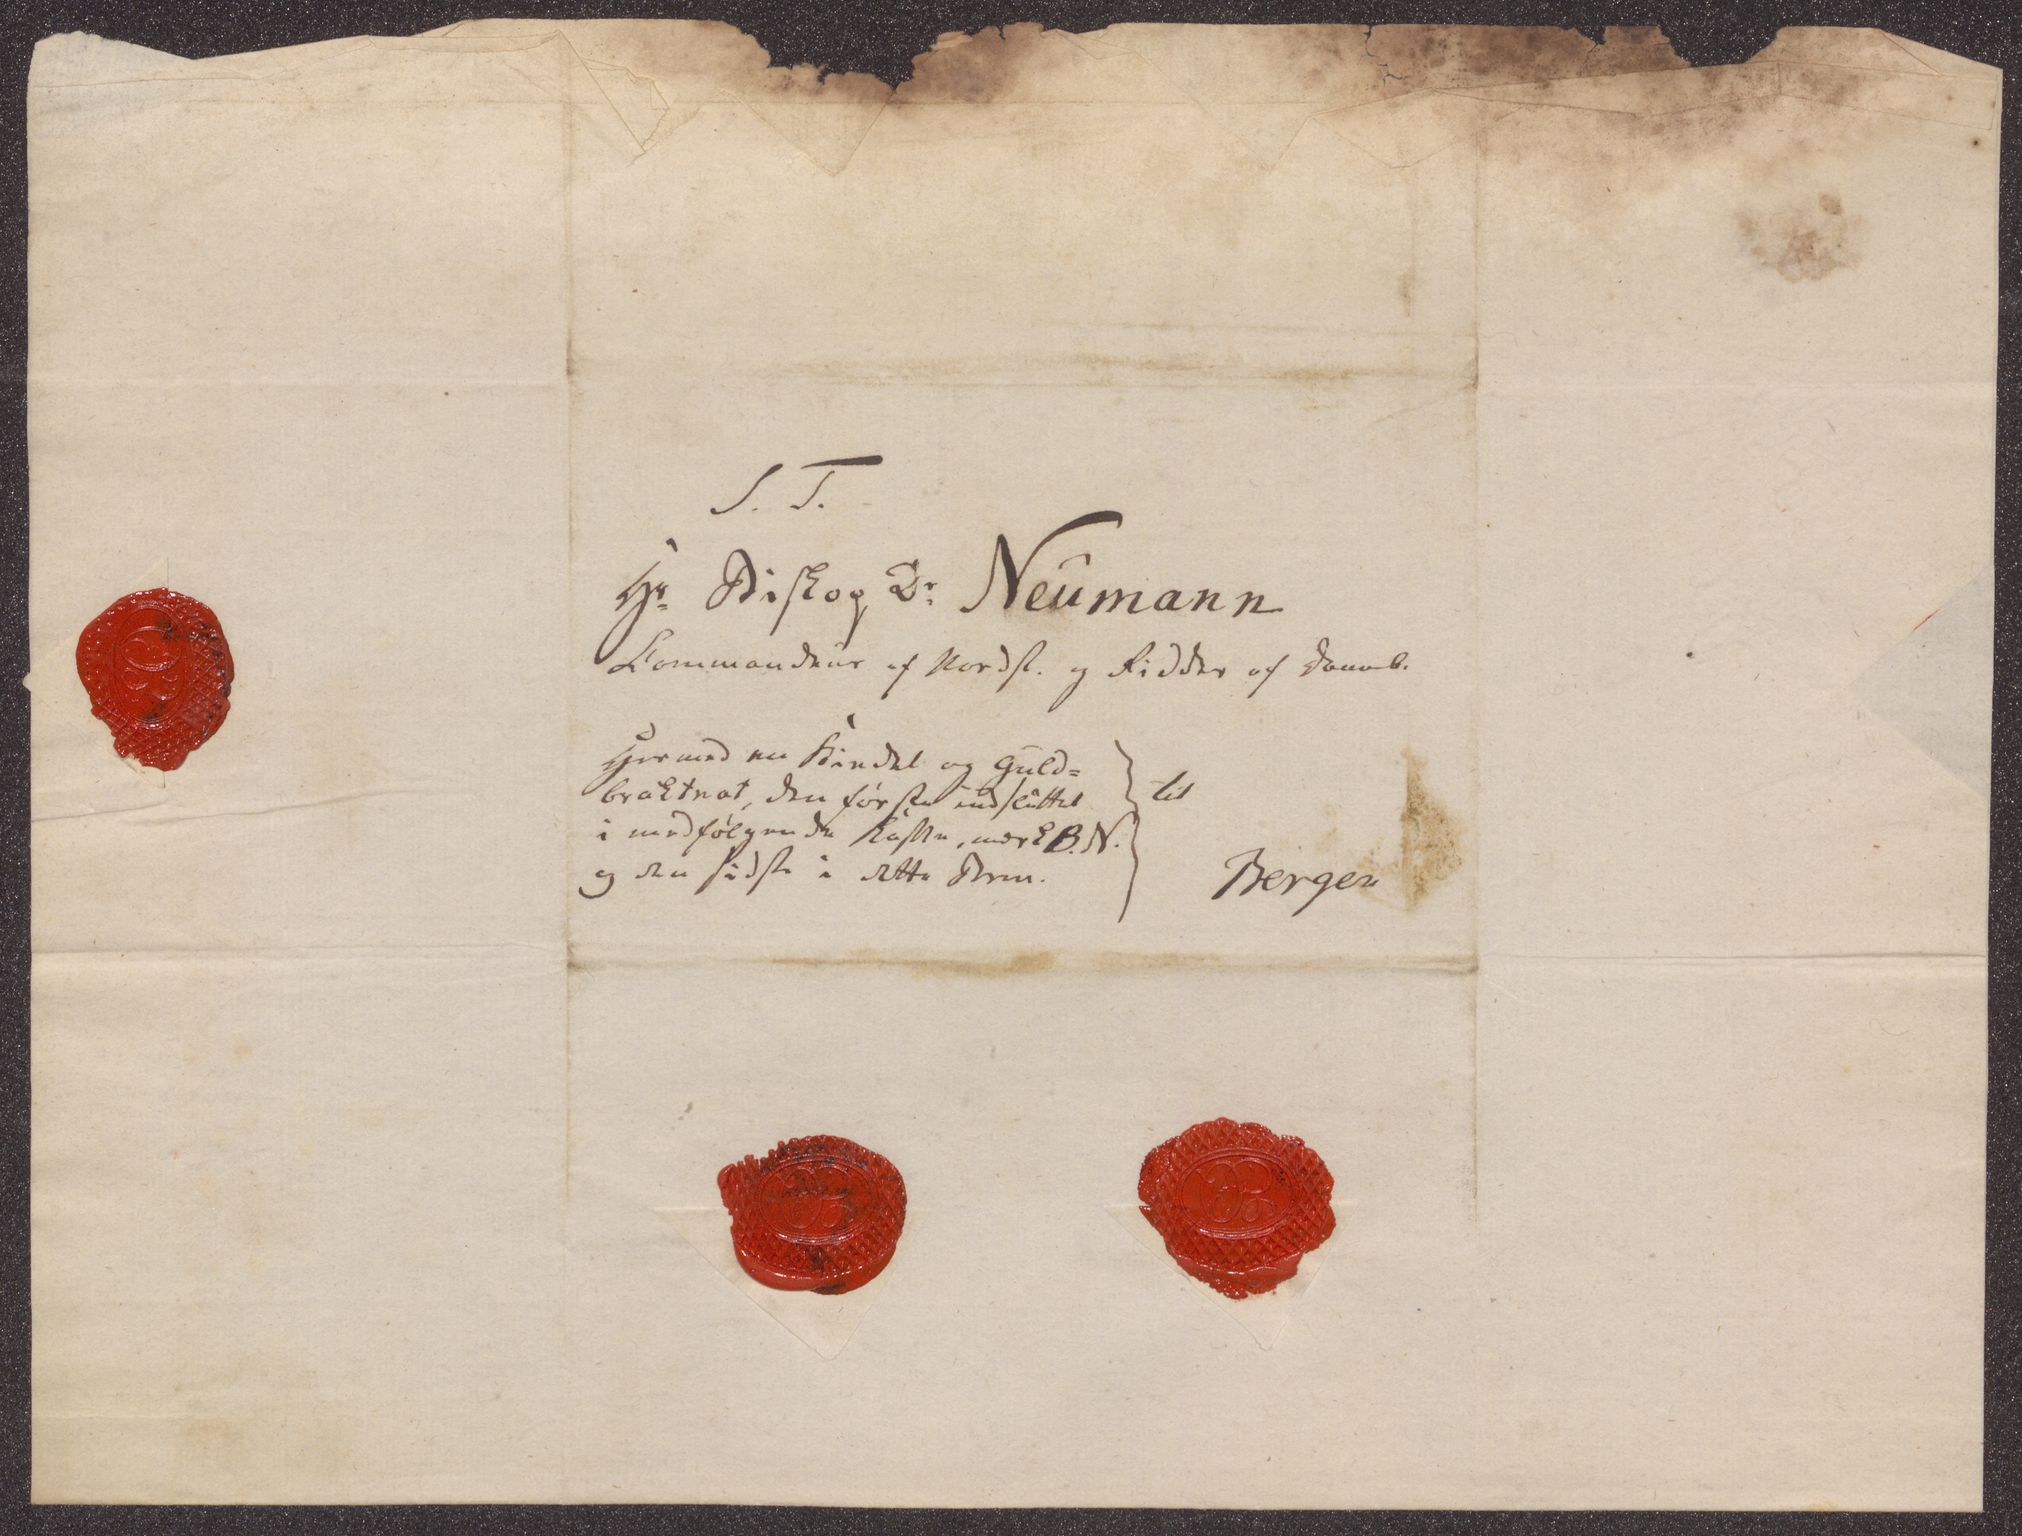 S. T.
Hr. Biskop Dr. Neumann
Commandeur af Nordst. og Ridder af Danneb.
Hermed en Kindel og Guld=
brakteat, den første indsluttet
i medfølgende Kasse, merk B. N.
og den sidste i dette Brev.
til
Bergen